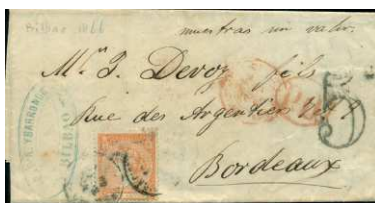 Bilbao 1866
muestras sin valor.
Mr. J. Devoz fils
Rue des Argentiers Nº
Bordeaux
BILBAO
5